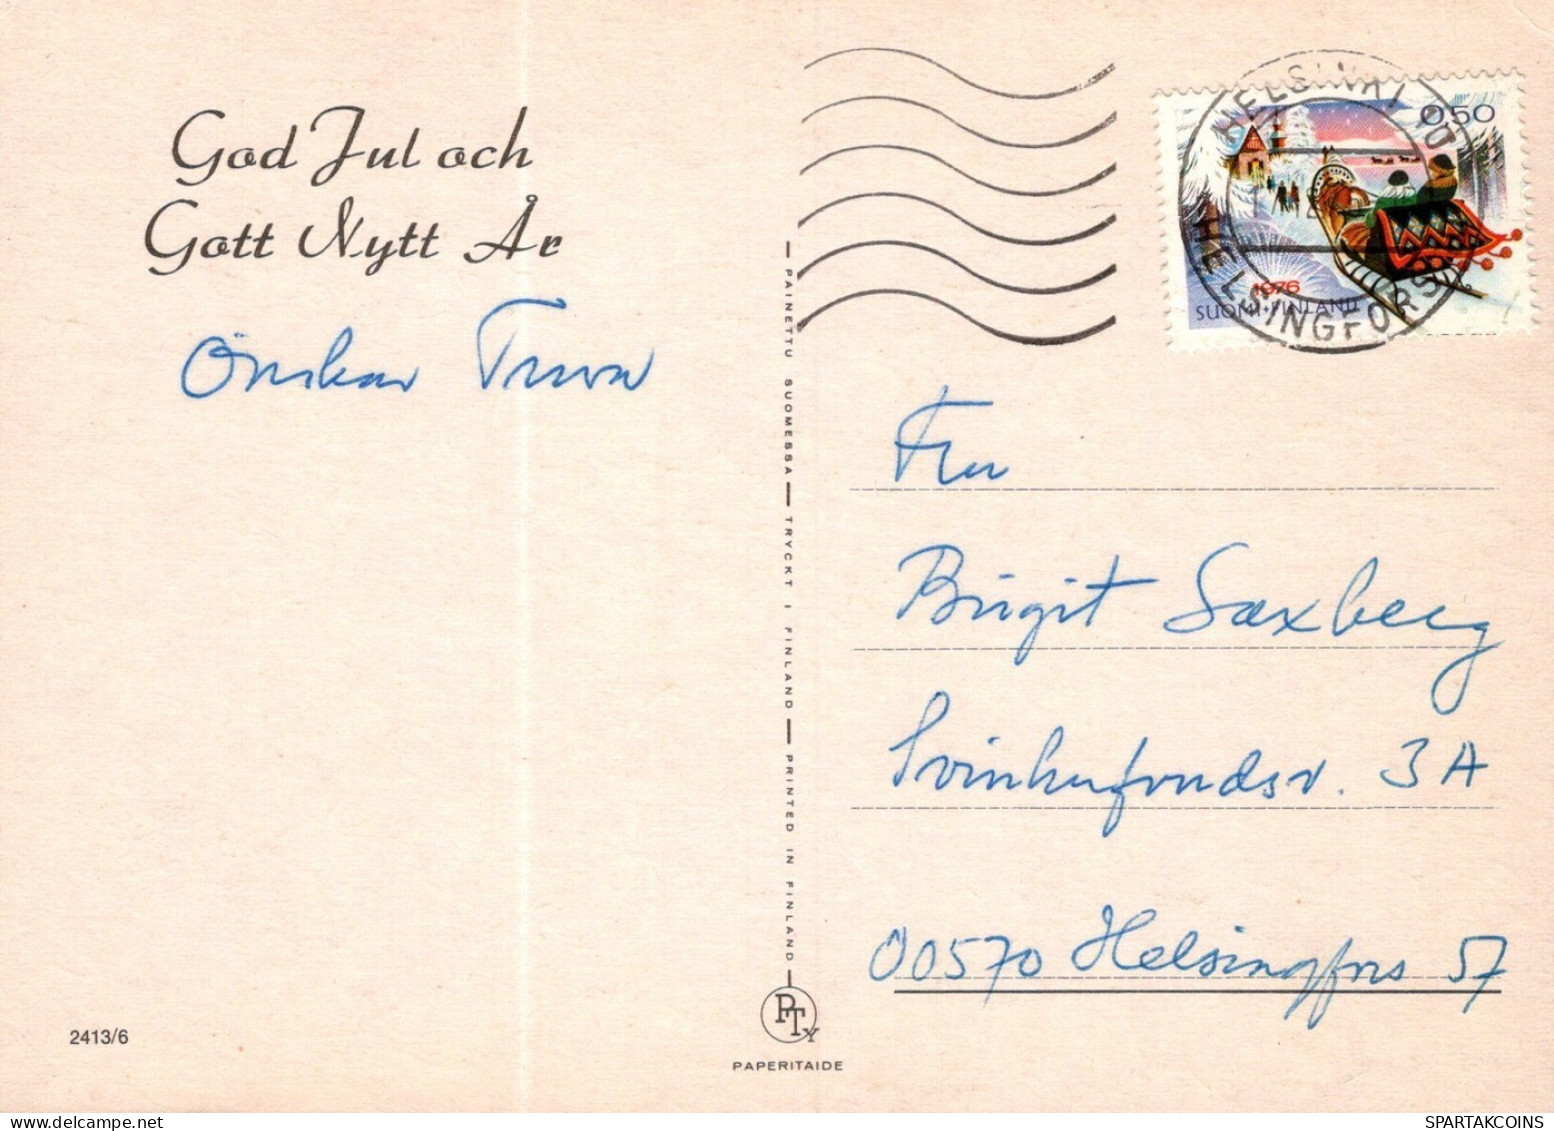 God Jul och
Gott Nytt År
Önskar Tuva
HELSINKI 10
HELSINGFORS
0,50
1976
SUOMI·FINLAND
PAINETTU SUOMESSA — TRYCKT I FINLAND — PRINTED IN FINLAND
Fru
Birgit Saxberg
Svinhufvudsv. 3A
00570 Helsingfors 57
PTY
PAPERITAIDE
2413/6
SPARTAKCOINS